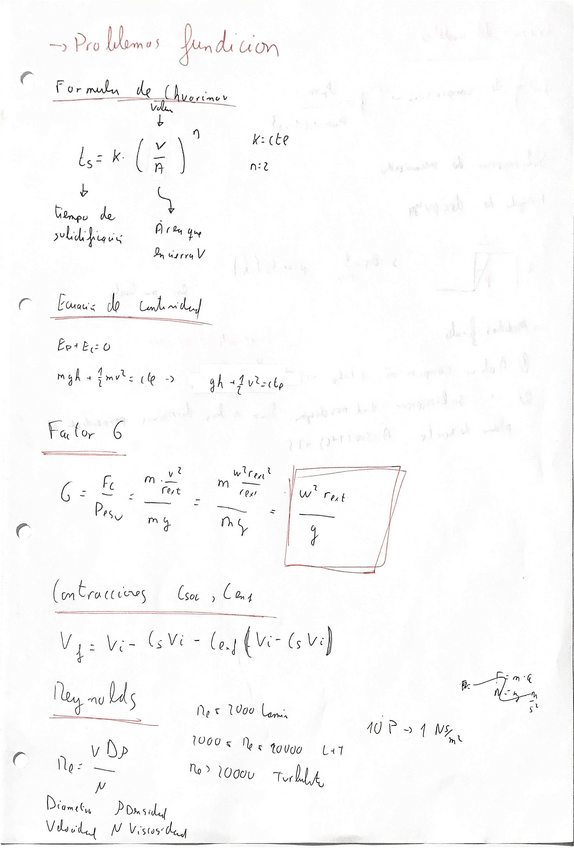 → Problemas fundicion
Formula de Chvorinov
volumen
t_s = K · (V/A)^n
K = cte
n = 2
tiempo de solidificación
Area que encierra V
Ecuación de continuidad
Ep + Ec = 0
mgh + 1/2 mv² = cte → gh + 1/2 v² = cte
Factor G
G = Fc/Peso = (m · v²/rext)/(mg) = (m w² rext²/rext)/(mg) = w² rext/g
Contracciones Csol, Cenf
V_f = Vi - CsVi - Cenf (Vi - CsVi)
Reynolds
Re < 2000 Lamin
2000 < Re < 20000 L+T
Re > 20000 Turbulento
10 P → 1 Ns/m²
F = m·a
Re = VDρ/μ
Diametro ρ Densidad
Velocidad μ Viscosidad